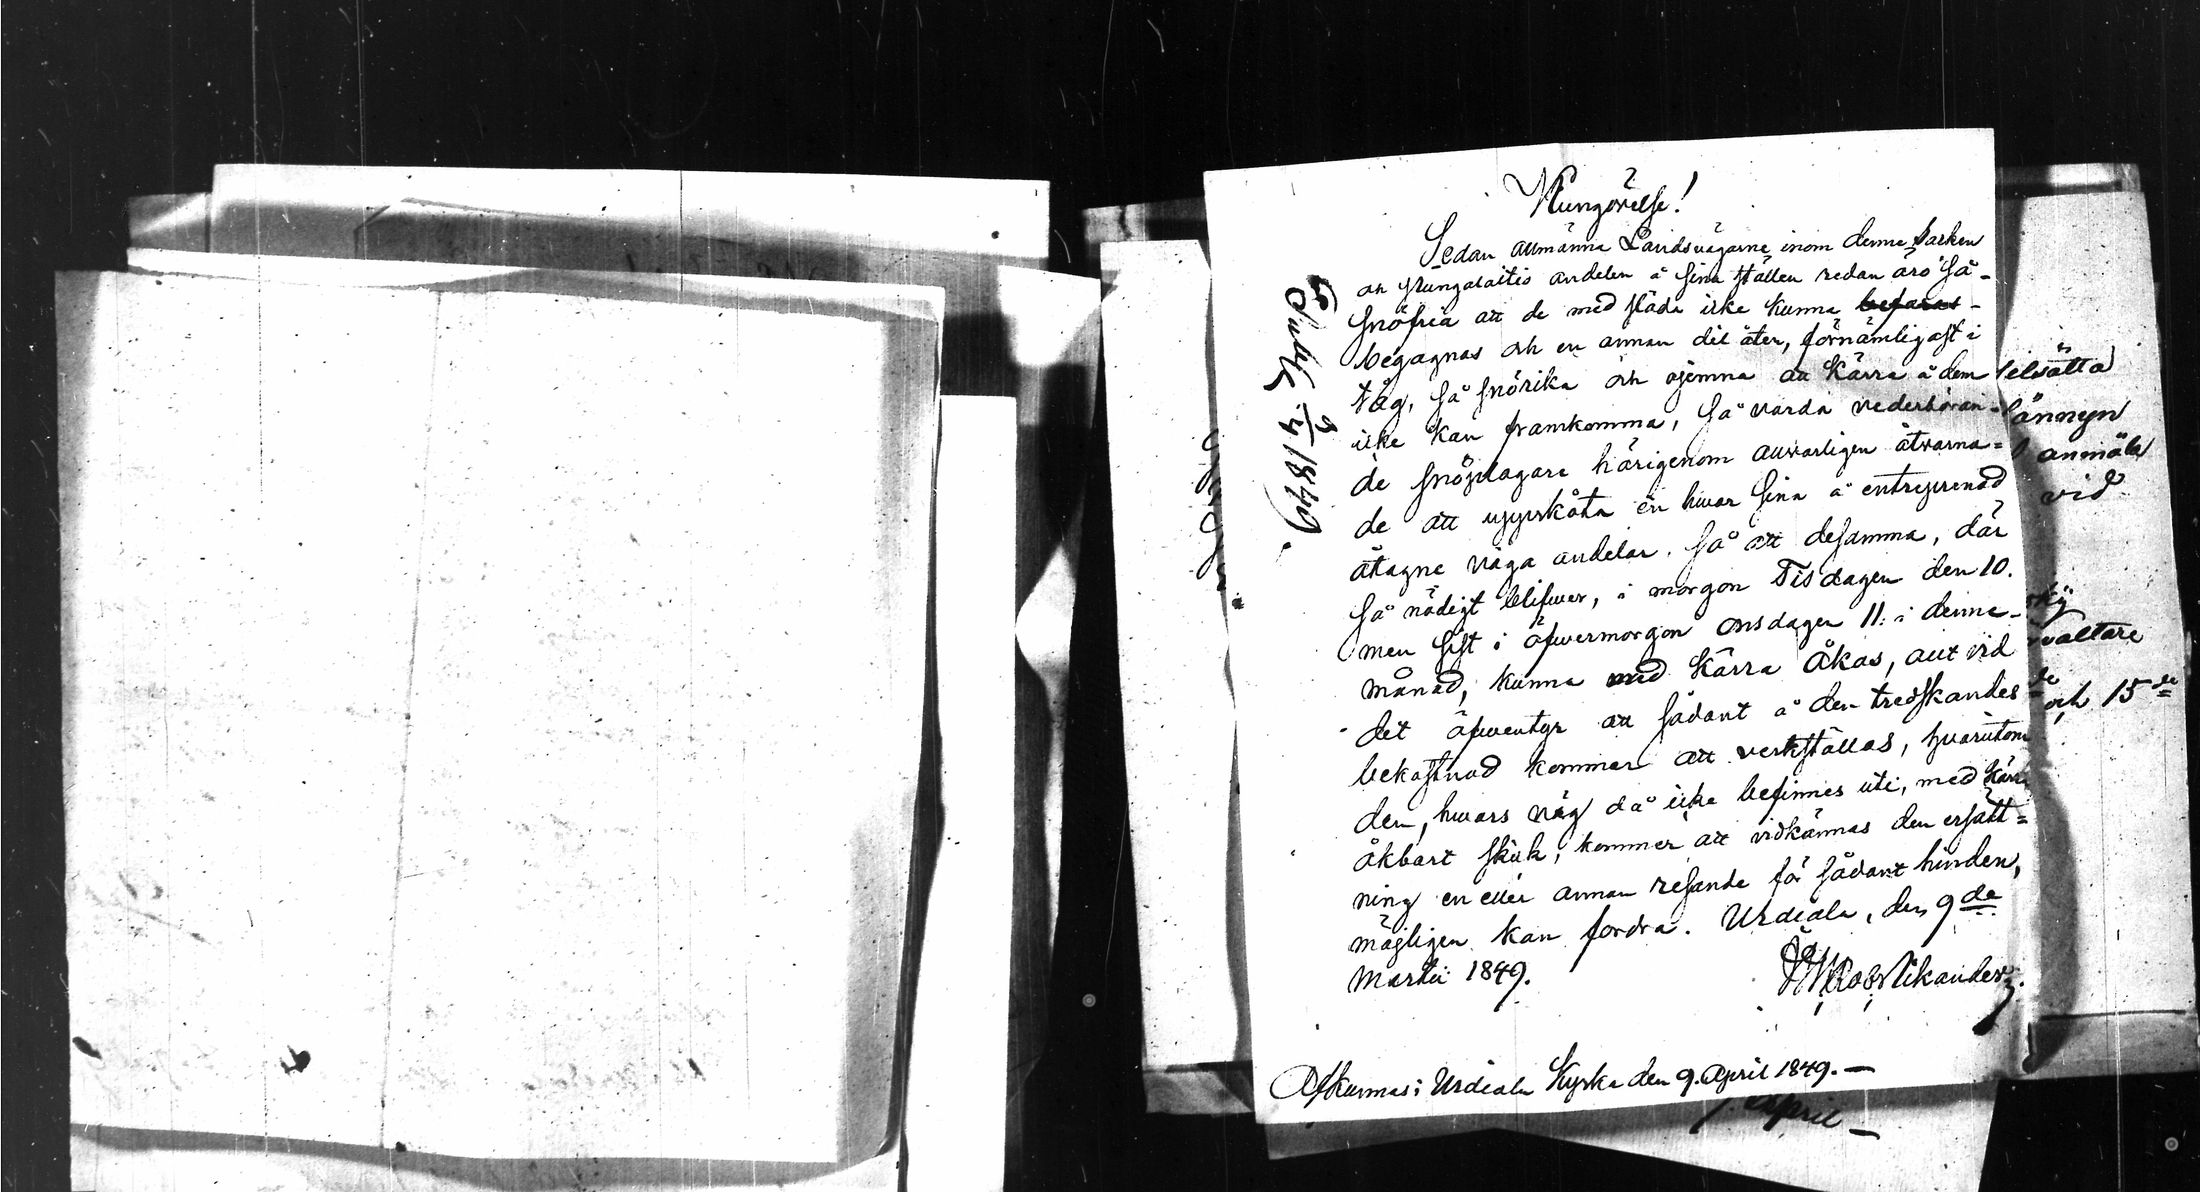 Kungörelse!
Sedan allmänna Landsvägarne inom denna Socken
och Kungalaitis andelen å sina ställen redan äro så-
snöfria att de med släda icke kunna befaras-
begagnas och en annan del åter, förnämligast i
tåg, så snörika och ojemna att Kärra å dem
icke kan framkomma, så varda vederböran-
de snöplogare härigenom allvarligen åtvarna=
de att uppsköta en hwar sina å entreprenad
åtagne väga andelar. så att desamma, där
så nödigt blifwer, i morgon Tisdagen den 10.
men sist i öfwermorgon onsdagen 11. i denne-
månad, kunna med Kärra åkas, allt vid
det äfwentyr att sådant å den tredskandes
bekostnad kommer att verkställas, hvarutom
den, hwars väg då icke befinnes uti, med Kärr
åkbart skick, kommer att vidkännas den ersätt=
ning en eller annan resande för sådant hinder,
möjligen kan fordra. Urdiala, den 9de
Martii 1849.
Nikander.
Afkunnas i Urdiala Kyrka den 9. April 1849.—
Publ. 9/4 1849.
elsätta
länmyn
anmäla
vid
valtare
och 15de
April —